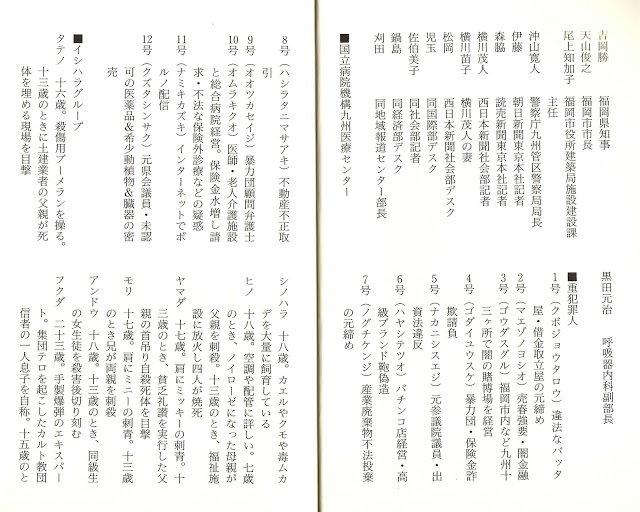 吉岡勝　福岡県知事
天山俊之　福岡市市長
尾上知加子　福岡市役所建築局施設建設課
主任
沖山寛人　警察庁九州管区警察局局長
伊藤　朝日新聞東京本社記者
森脇　読売新聞東京本社記者
横川茂人　西日本新聞社会部記者
横川苗子　横川茂人の妻
松岡　西日本新聞社会部デスク
児玉　同国際部デスク
佐伯美子　同社会部記者
鍋島　同経済部デスク
刈田　同地域報道センター部長
■国立病院機構九州医療センター
黒田元治　呼吸器内科副部長
■重犯罪人
1号（クボジョウタロウ）違法なバッタ
屋・借金取立屋の元締め
2号（マエゾノヨシオ）売春強要・闇金融
3号（ゴウダスグル）福岡市内など九州十
三ヶ所で闇の賭博場を経営
4号（ゴダイユウスケ）暴力団・保険金詐
欺請負
5号（ナカニシスエジ）元参議院議員・出
資法違反
6号（ハヤシテツオ）パチンコ店経営・高
級ブランド鞄偽造
7号（ノグチケンジ）産業廃棄物不法投棄
の元締め
8号（ハシラタニマサアキ）不動産不正取
引
9号（オオツカセイジ）暴力団顧問弁護士
10号（オムラキクオ）医師・老人介護施設
と総合病院経営。保険金水増し請
求・不法な保険外診療などの疑惑
11号（ナミキカズキ）インターネットでポ
ルノ配信
12号（クズタシンサク）元県会議員・未認
可の医薬品&希少動植物&臓器の密
売
■イシハラグループ
タテノ　十六歳。殺傷用ブーメランを操る。
十三歳のときに土建業者の父親が死
体を埋める現場を目撃
シノハラ　十八歳。カエルやクモや毒ムカ
デを大量に飼育している
ヒノ　十八歳。空調や配管に詳しい。七歳
のとき、ノイローゼになった母親が
父親を刺殺。十三歳のとき、福祉施
設に放火し四人が焼死
ヤマダ　十七歳。肩にミッキーの刺青。十
三歳のとき、貧乏礼讃を実行した父
親の首吊り自殺死体を目撃
モリ　十七歳。肩にミニーの刺青。十三歳
のとき兄が両親を刺殺
アンドウ　十八歳。十三歳のとき、同級生
の女生徒を殺害後切り刻む
フクダ　二十三歳。手製爆弾のエキスパー
ト。集団テロを起こしたカルト教団
信者の一人息子を自称。十五歳のと